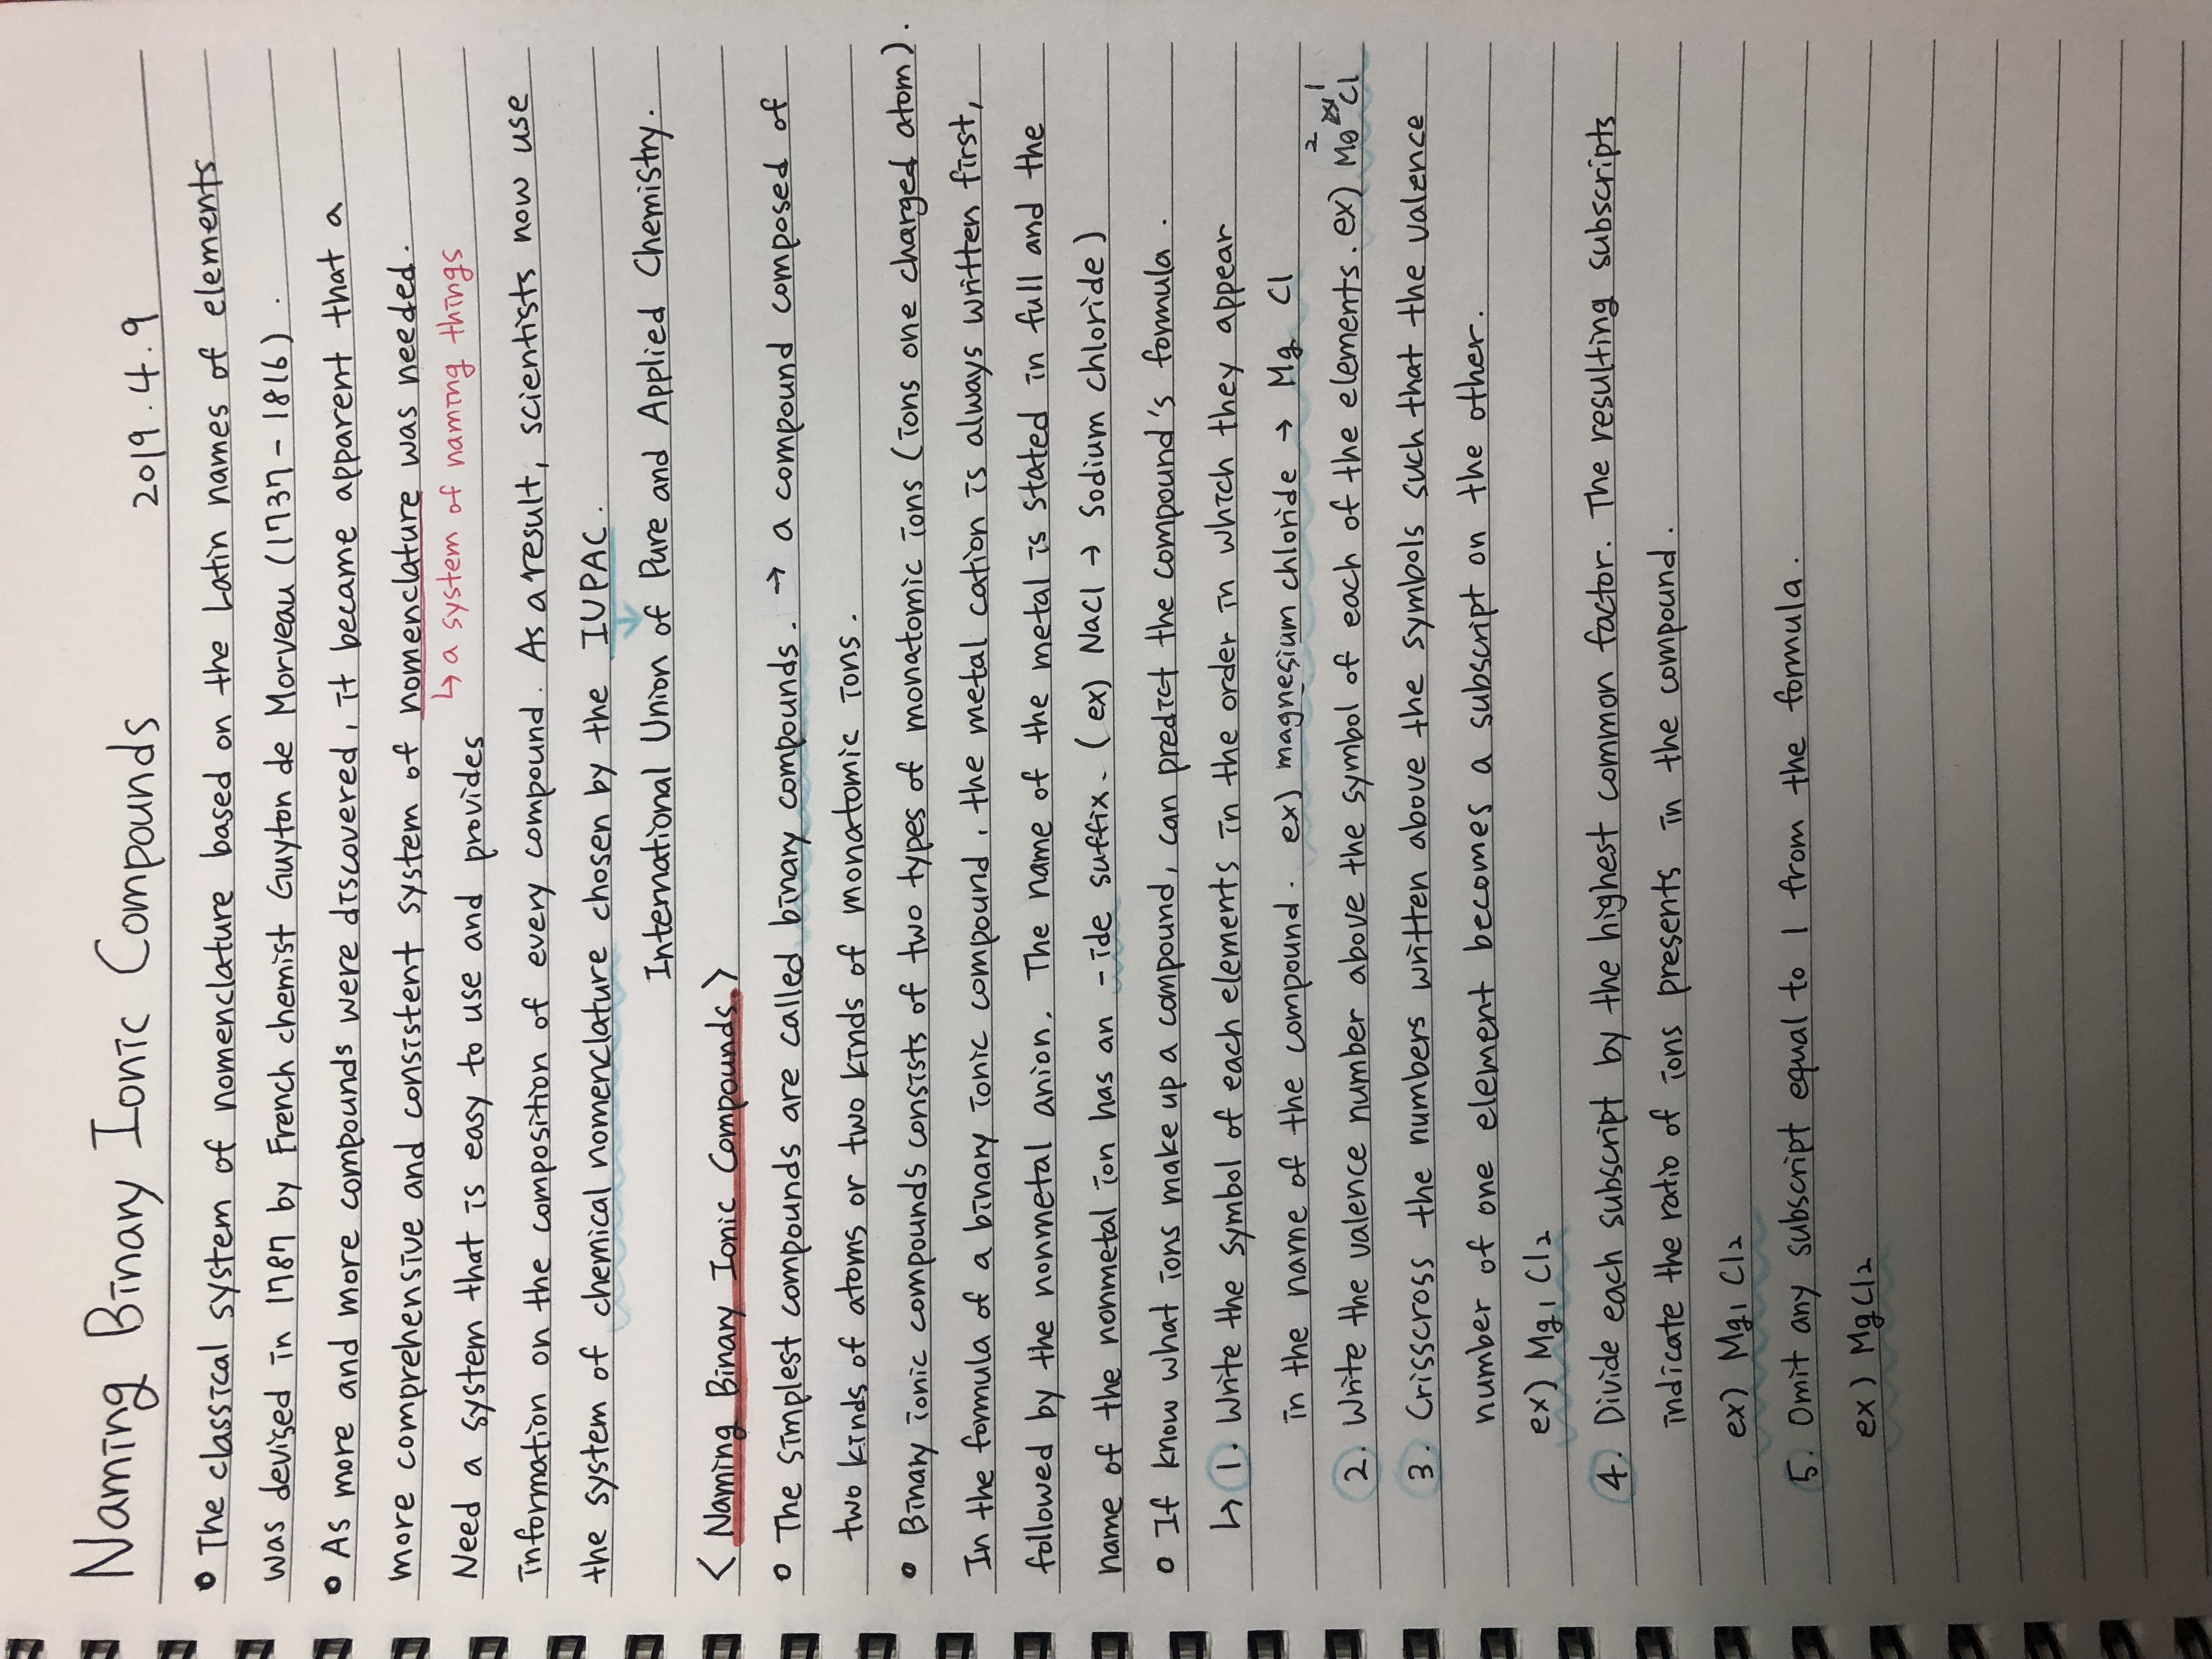 Naming Binary Ionic Compounds 2019.4.9
• The classical system of nomenclature based on the Latin names of elements
was devised in 1787 by French chemist Guyton de Morveau (1737-1816).
• As more and more compounds were discovered, it became apparent that a
more comprehensive and consistent system of nomenclature was needed.
↳ a system of naming things
Need a system that is easy to use and provides
information on the composition of every compound. As a result, scientists now use
the system of chemical nomenclature chosen by the IUPAC.
International Union of Pure and Applied Chemistry.
<Naming Binary Ionic Compounds>
• The simplest compounds are called binary compounds. → a compound composed of
two kinds of atoms or two kinds of monatomic ions.
• Binary ionic compounds consists of two types of monatomic ions (ions one charged atom).
In the formula of a binary ionic compound, the metal cation is always written first,
followed by the nonmetal anion. The name of the metal is stated in full and the
name of the nonmetal ion has an -ide suffix. (ex) NaCl → Sodium chloride)
• If know what ions make up a compound, can predict the compound's formula.
↳ 1. Write the symbol of each elements in the order in which they appear
in the name of the compound. ex) magnesium chloride → Mg Cl
2. Write the valence number above the symbol of each of the elements. ex) Mg² Cl¹
3. Crisscross the numbers written above the symbols such that the valence
number of one element becomes a subscript on the other.
ex) Mg₁ Cl₂
4. Divide each subscript by the highest common factor. The resulting subscripts
indicate the ratio of ions presents in the compound.
ex) Mg₁ Cl₂
5. Omit any subscript equal to 1 from the formula.
ex) MgCl₂